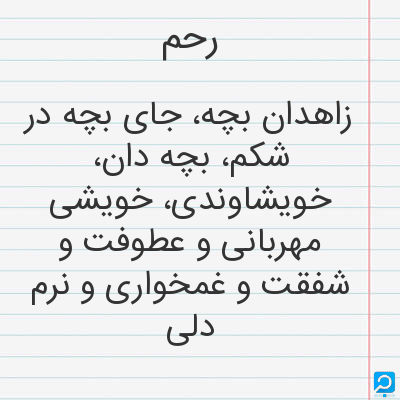 رحم
زاهدان بچه، جای بچه در
شکم، بچه دان،
خویشاوندی، خویشی
مهربانی و عطوفت و
شفقت و غمخواری و نرم
دلی